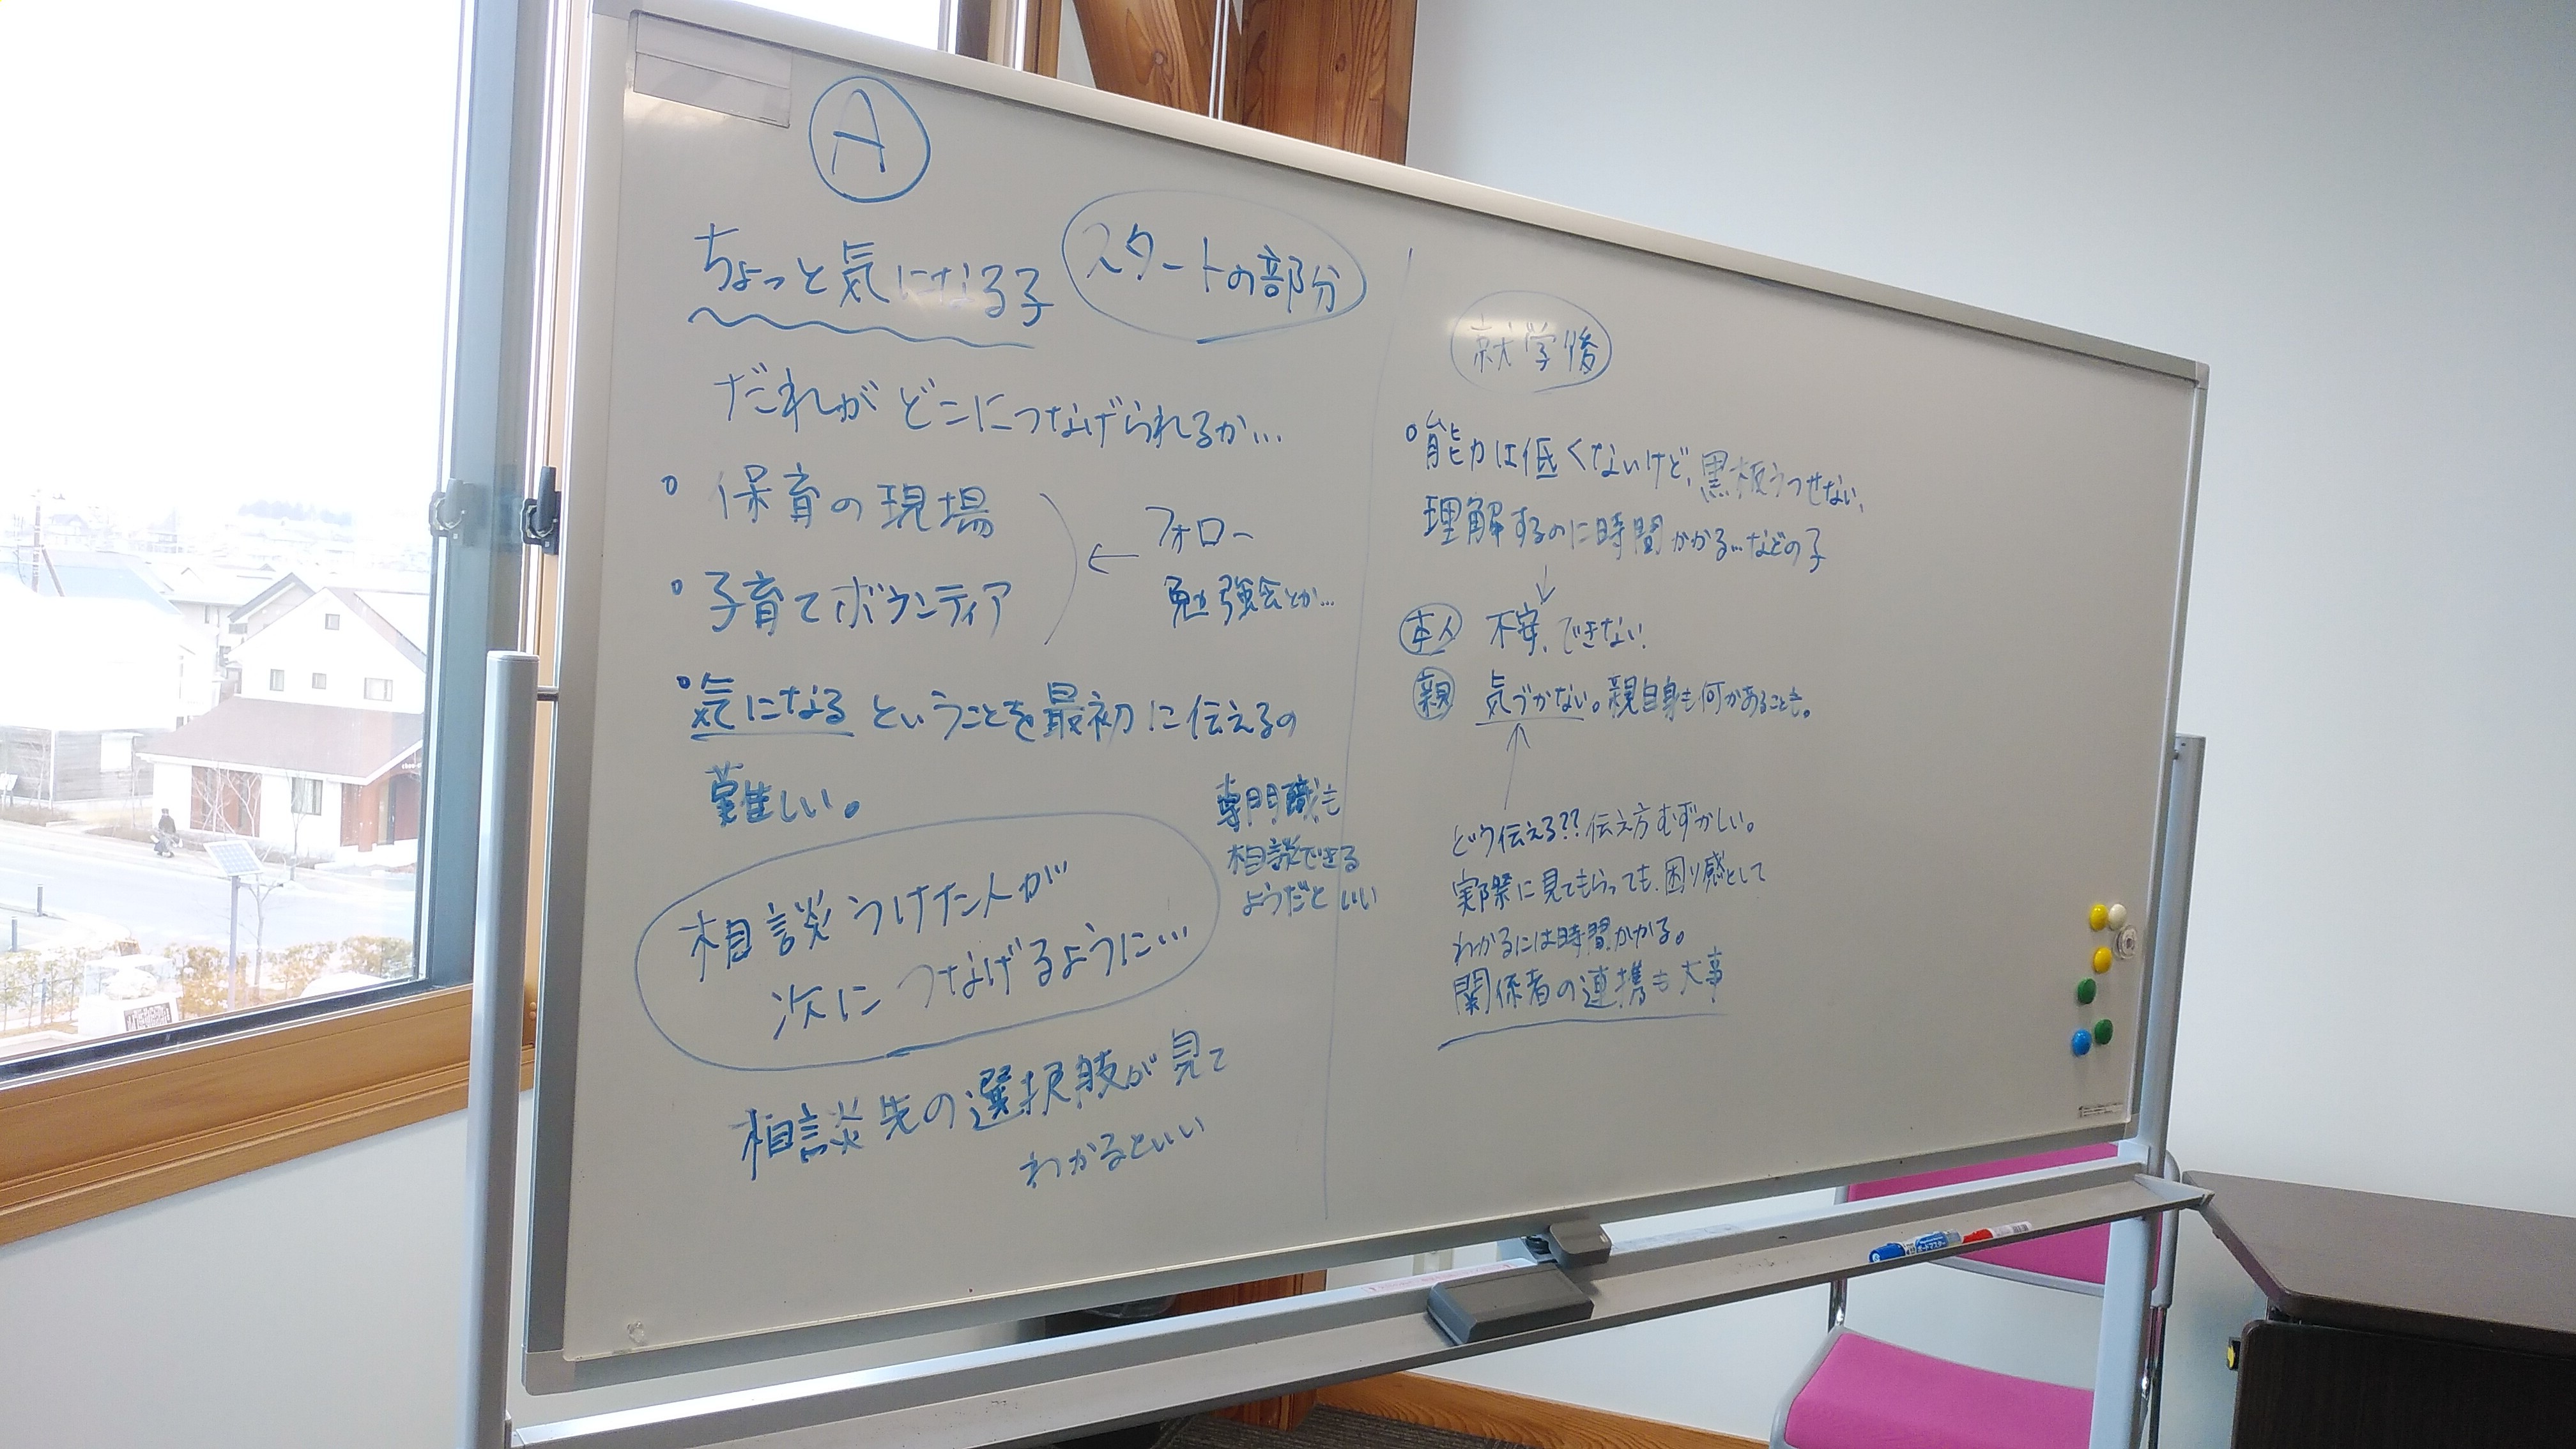 A
ちょっと気になる子
スタートの部分
だれがどこにつなげられるか…
。保育の現場
。子育てボランティア
← フォロー
勉強会とか…
。気になるということを最初に伝えるの
難しい。
専門職も
相談できる
ようだといい
相談うけた人が
次につなげるように…
相談先の選択肢が見て
わかるといい
就学後
。能力は低くないけど、黒板うつせない、
理解するのに時間かかる…などの子
↓
本人 不安、できない、
親 気づかない。親自身も何かあることも。
↑
どう伝える??伝え方むずかしい。
実際に見てもらっても、困り感として
わかるには時間かかる。
関係者の連携も大事